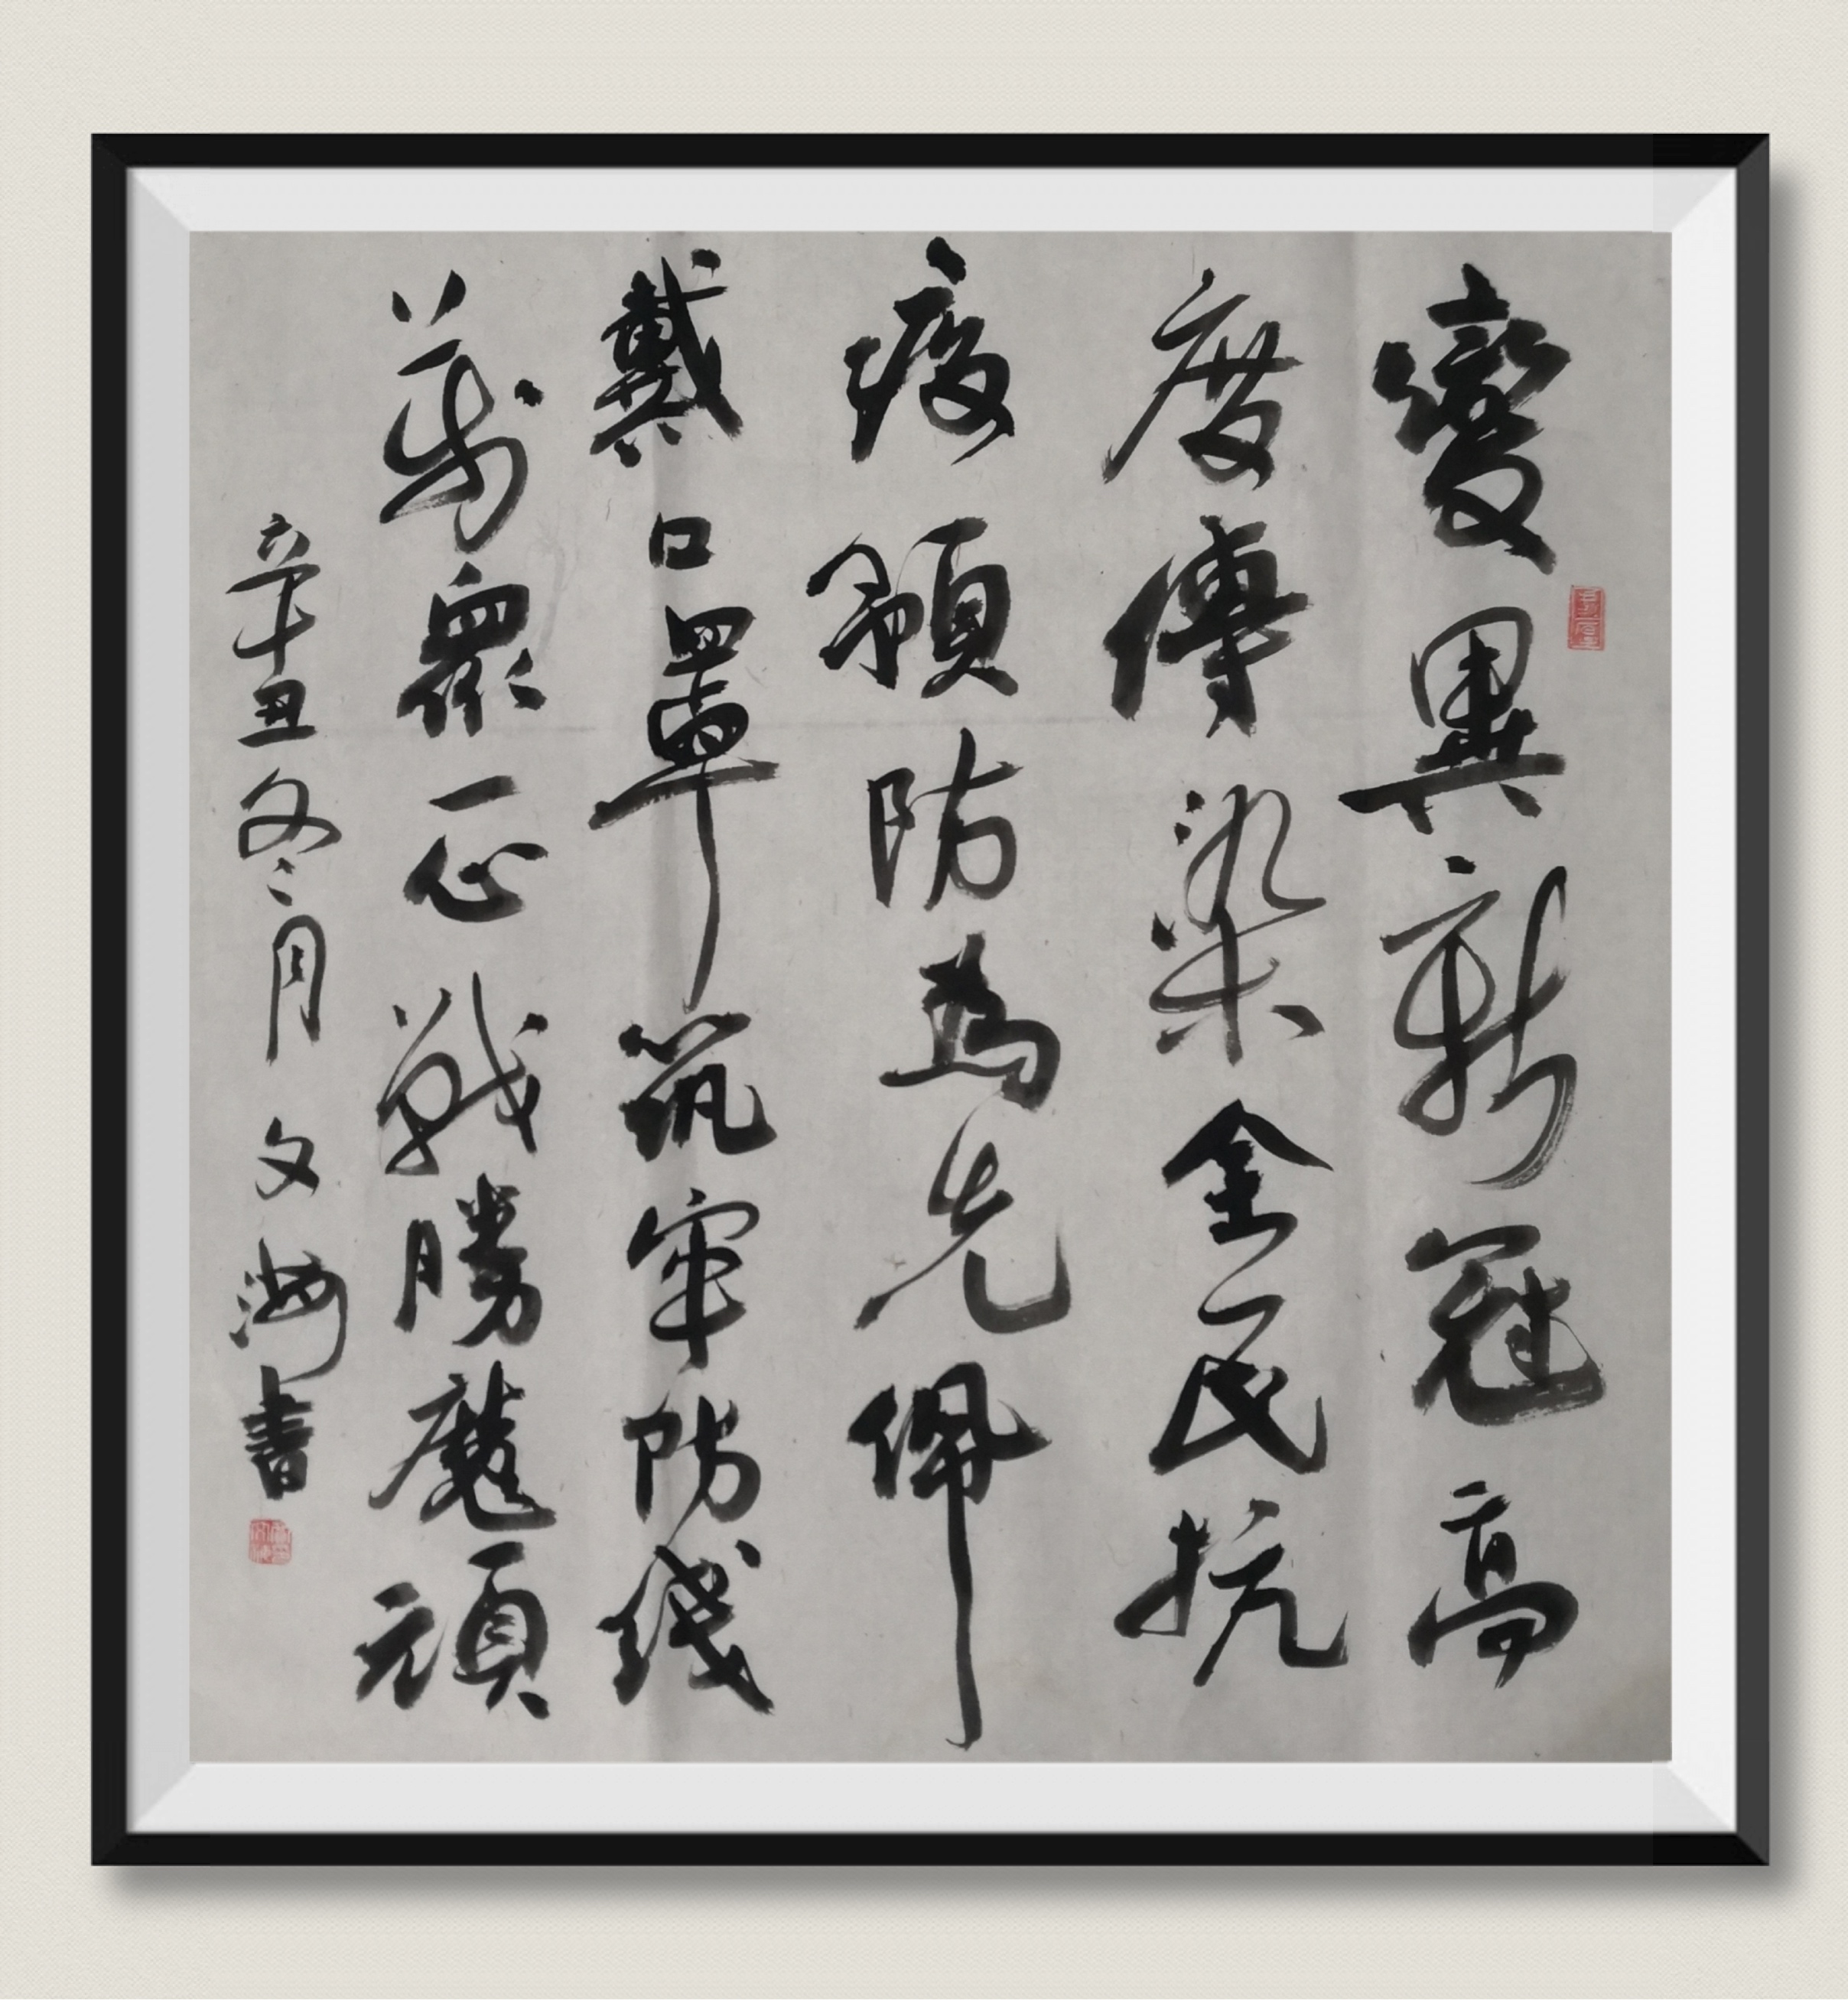 變異新冠高
度傳染全民抗
疫預防為先佩
戴口罩筑牢防线
萬眾一心戰勝魔頑
辛丑冬月文海書